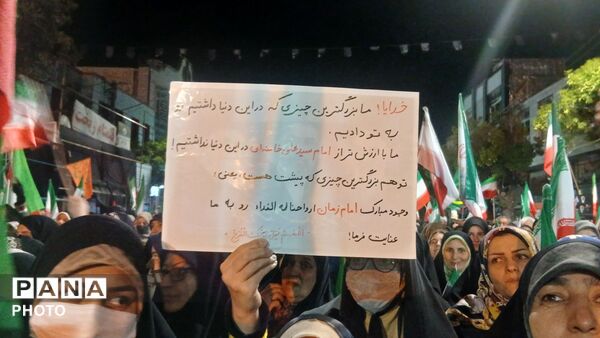 خدایا! ما بزرگترین چیزی که در این دنیا داشتیم
به تو دادیم.
ما با ارزش تر از امام سید علی خامنه‌ای در این دنیا نداشتیم!
تو هم بزرگترین چیزی که پیشت هست، یعنی؛
وجود مبارک امام زمان ارواحنا له الفداء رو به ما
عنایت فرما!
PANA
PHOTO